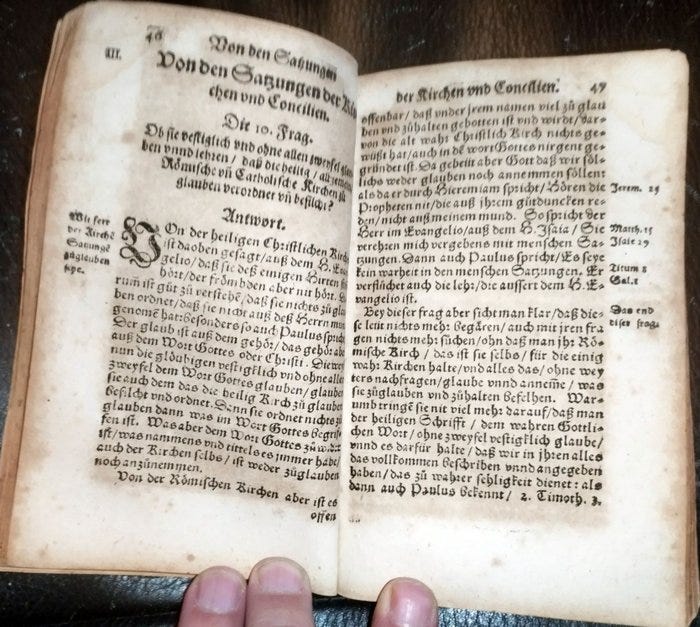 46
Von den Satzungen
III.
Von den Satzungen der Kir
chen vnd Concilien.
Die 10. Frag.
Ob sie vestiglich vnd ohne allen zweyfel glau
ben vnnd lehren / daß die heilig / allgemein
Römische vn̄ Catholische Kirchen zů
glauben verordnet vn̄ befilcht?
Antwort.
Wie ferr
der Kirchē
Satzungē
zůglauben
seye.
VOn der heiligen Christlichen Kirch
ist daoben gesagt / auß dem H. Euan
gelio / daß sie deß einigen Hirten stim
hört / der frömbden aber nit hört. Da
rum̄ ist gůt zů verstehē / daß sie nichts zů glau
ben ordnet / daß sie nicht auß deß Herrn mund
genomē hat: besonders so auch Paulus spricht
Der glaub ist auß dem gehör / das gehör aber
auß dem Wort Gottes oder Christi. Die weil
nun die glöubigen vestigklich vnd ohne allen
zweyfel dem Wort Gottes glauben / glauben
sie auch dem das die heilig Kirch zů glauben
befilcht vnd ordnet. Dann sie ordnet nichts zů
glauben dann was im Wort Gottes begrif-
fen ist. Was aber dem Wort Gottes zů wider
ist / was nammens vnd tittels es jmmer habe /
auch der Kirchen selbs / ist weder zůglauben
noch anzůnemmen.
Von der Römischen Kirchen aber ist es
offen
der Kirchen vnd Concilien. 47
offenbar / daß vnder jrem namen viel zů glau
ben vnd zůhalten gebotten ist vnd wirdt / dar-
von die alt wahr Christlich Kirch nichts ge-
wüßt hat / auch in dē wort Gottes nirgent ge-
gründet ist. Da gebeüt aber Gott daß wir söl-
lichs weder glauben noch annemmen söllent
als da er durch Hieremiam spricht / Hören die
Propheten nit / die auß jhrem gůtduncken re-
den / nicht auß meinem mund. So spricht der
Herr im Evangelio / auß dem H. Isaia / Sie
verehren mich vergebens mit menschen Sa-
tzungen. Dann auch Paulus spricht / Es seye
kein warheit in den menschen Satzungen. Er
verflüchet auch die lehr / die ausser dem H. E-
vangelio ist.
Jerem. 23
Matth. 15
Isaie 29
Titum 1
Gal. 1
Bey dieser frag aber sicht man klar / daß die-
se leüt nichts mehr begären / auch mit jren fra
gen nichts mehr sůchen / ohn daß man jhr Rö-
mische Kirch / das ist sie selbs / für die einig
wahr Kirchen halte / vnd alles das / ohne wey
ters nachfragen / glaube vnnd annem̄e / was
sie zůglauben vnd zůhalten befelhen. War-
umb tringē sie nit viel mehr darauf / daß man
der heiligen Schrifft / dem wahren Göttli-
chen Wort / ohne zweyfel vestigklich glaube /
vnnd es darfür halte / daß wir in jhren alles
das vollkommen beschriben vnnd angegeben
haben / das zů wahrer sehligkeit dienet: als
dann auch Paulus bekennt / 2. Timoth. 3.
Das end
diser frag.